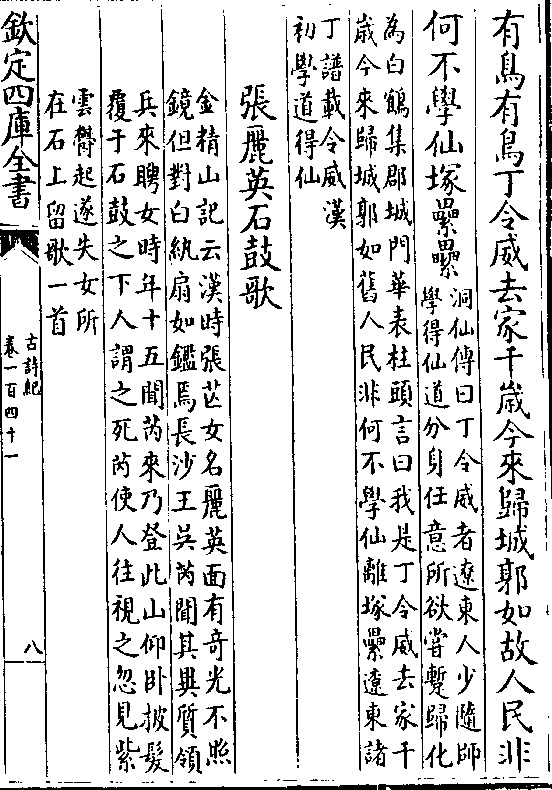 有鳥有鳥丁令威去家千嵗今來歸城郭如故人民非
何不學仙塚纍纍
洞仙傳曰丁令威者遼東人少隨師
學得仙道分身任意所欲甞蹔歸化
為白鶴集郡城門華表柱頭言曰我是丁令威去家千
嵗今來歸城郭如舊人民非何不學仙離塚纍遼東諸
丁譜載令威漢
初學道得仙
張麗英石鼓歌
金精山記云漢時張芒女名麗英面有奇光不照
鏡但對白紈扇如鑑焉長沙王吳芮聞其異質領
兵來聘女時年十五聞芮來乃登此山仰卧披髮
覆于石鼓之下人謂之死芮使人往視之忽見紫
雲鬱起遂失女所
在石上留歌一首
欽定四庫全書
古詩紀
卷一百四十一
八